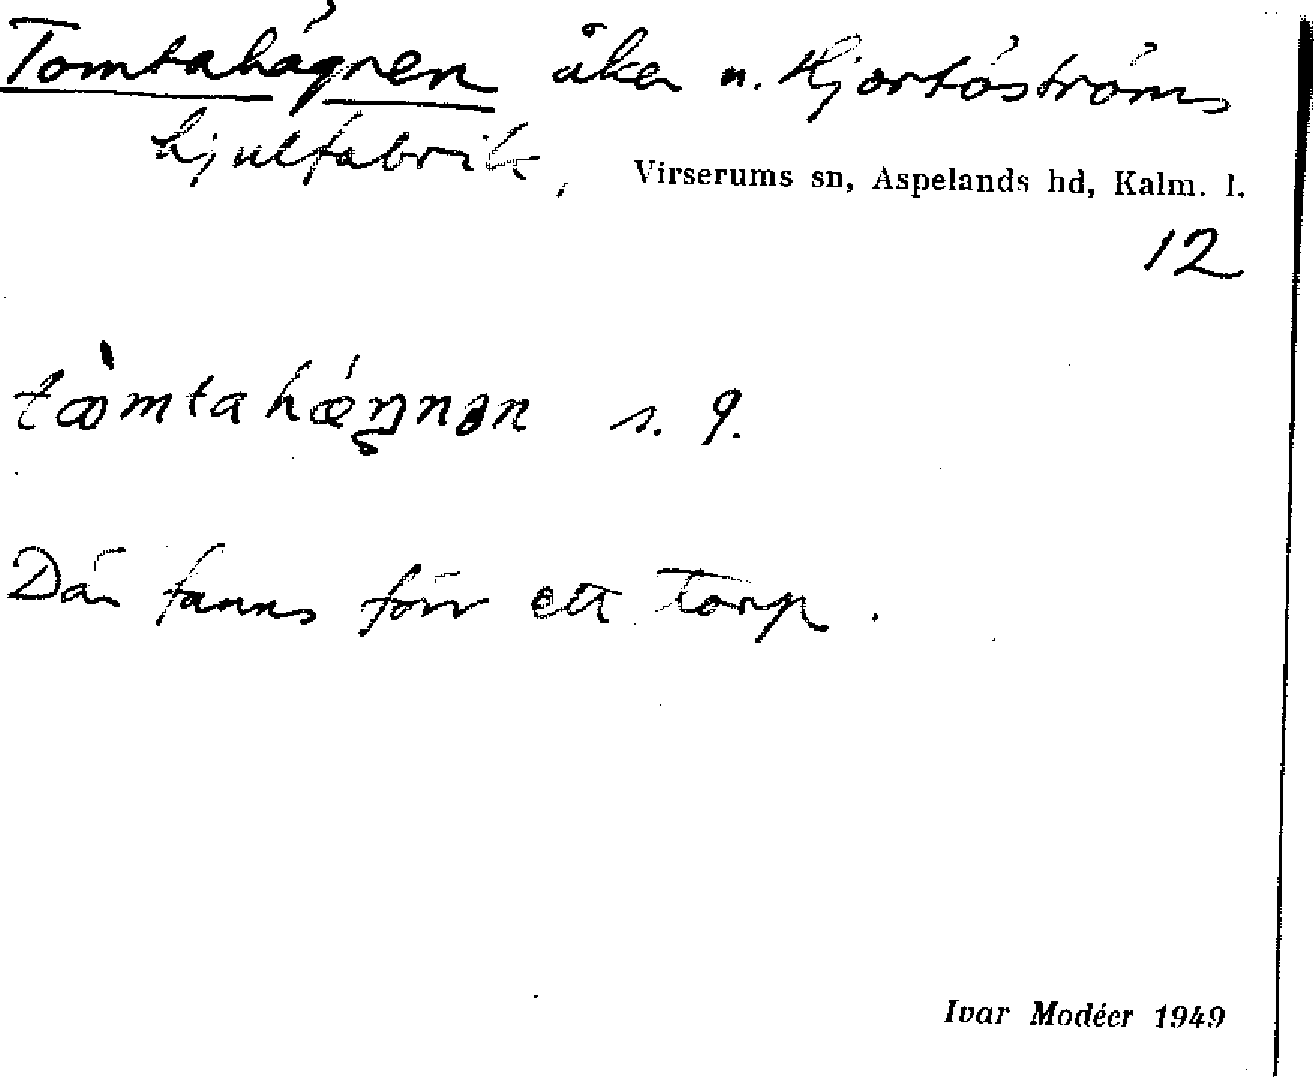 Tomtahägnen åker n. Hjortöströms
hjulfabrik, Virserums sn, Aspelands hd, Kalm. l.
12
s. g.
Där fanns förr ett torp.
Ivar Modéer 1949